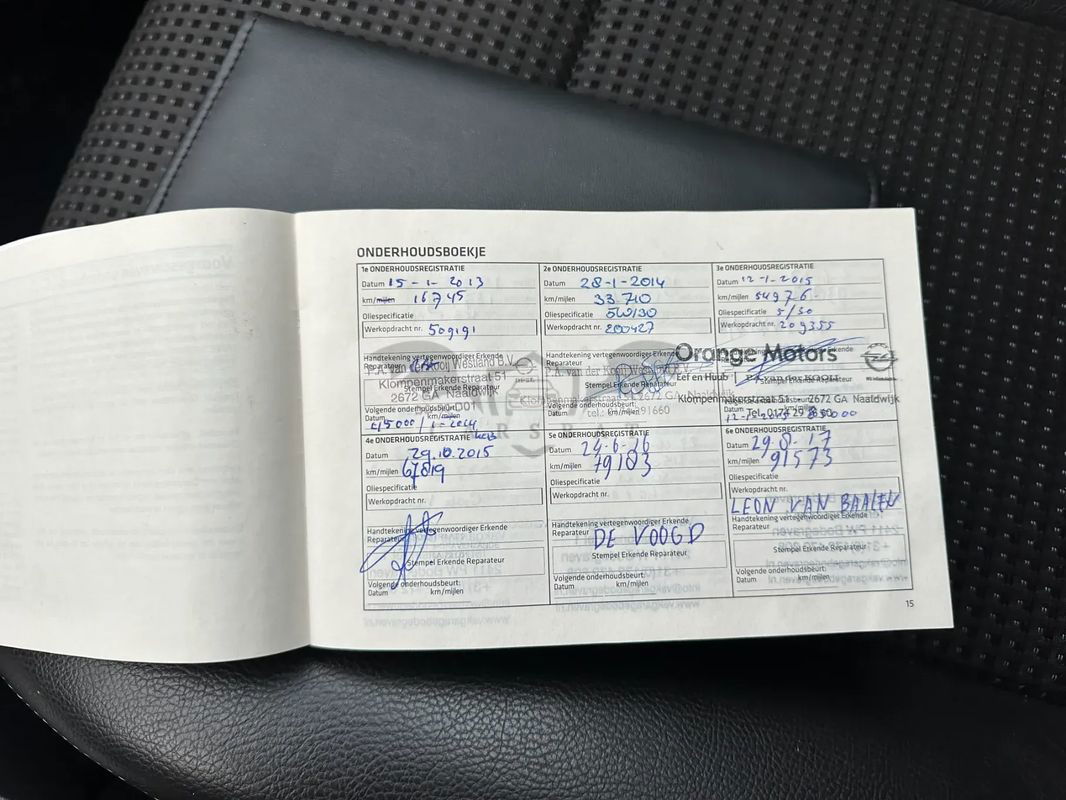 ONDERHOUDSBOEKJE
1e ONDERHOUDSREGISTRATIE
Datum 15-1-2013
km/mijlen 16745
Oliespecificatie
Werkopdracht nr. 509191
Handtekening vertegenwoordiger Erkende
Reparateur
P.A. van der Kooij Westland B.V.
Klompenmakerstraat 51
2672 GA Naaldwijk
Volgende onderhoudsbeurt:
Datum km/mijlen
2e ONDERHOUDSREGISTRATIE
Datum 28-1-2014
km/mijlen 33.710
Oliespecificatie 5W/30
Werkopdracht nr. 200427
Handtekening vertegenwoordiger Erkende
Reparateur
P.A. van der Kooij Westland B.V.
Stempel Erkende Reparateur
Klompenmakerstraat 51, 2672 GA Naaldwijk
Volgende onderhoudsbeurt:
Datum
3e ONDERHOUDSREGISTRATIE
Datum 12-1-2015
km/mijlen 54976
Oliespecificatie 5/30
Werkopdracht nr. 209355
Orange Motors
Eef en Huub
Stempel Erkende Reparateur
Klompenmakerstraat 51, 2672 GA Naaldwijk
4e ONDERHOUDSREGISTRATIE
Datum 29.10.2015
km/mijlen 67819
Oliespecificatie
Werkopdracht nr.
Handtekening vertegenwoordiger Erkende
Reparateur
Stempel Erkende Reparateur
Volgende onderhoudsbeurt:
Datum km/mijlen
5e ONDERHOUDSREGISTRATIE
Datum 24-6-16
km/mijlen 79183
Oliespecificatie
Werkopdracht nr.
Handtekening vertegenwoordiger Erkende
Reparateur DE VOOGD
Stempel Erkende Reparateur
Volgende onderhoudsbeurt:
Datum km/mijlen
6e ONDERHOUDSREGISTRATIE
Datum 29-8-17
km/mijlen 91573
Oliespecificatie
Werkopdracht nr.
LEON VAN BAALEN
Handtekening vertegenwoordiger Erkende
Reparateur
Stempel Erkende Reparateur
Volgende onderhoudsbeurt:
Datum km/mijlen
15